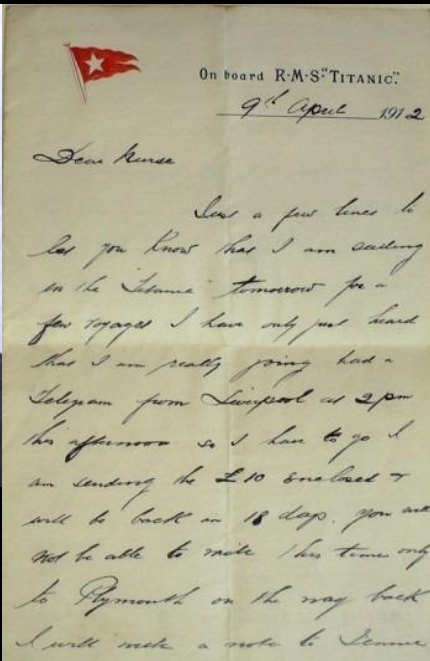 On board R·M·S "TITANIC".
9th April 1912
Dear Nurse
Just a few lines to
let you know that I am sailing
on the "Titanic" tomorrow for a
few voyages I have only just heard
that I am really going had a
Telegram from Liverpool at 2pm
this afternoon so I have to go I
am sending the £10 enclosed &
will be back in 18 days, you will
not be able to write this time only
to Plymouth on the way back
I will write a note to